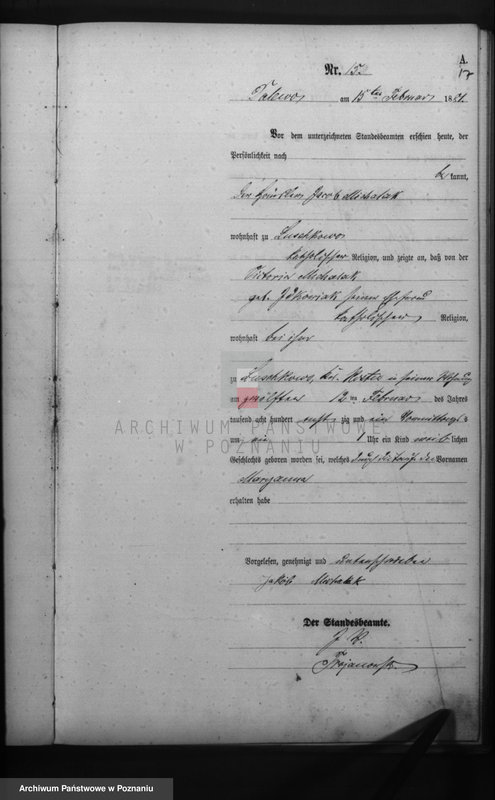 A.
17
Nr. 15.
am 15ten Februar 1881.
Vor dem unterzeichneten Standesbeamten erschien heute, der
Persönlichkeit nach
be kannt,
der Häusler Jacob Michalak
wohnhaft zu Luschkowo
katholischer Religion, und zeigte an, daß von der
Victoria Michalak
geb. seiner Ehefrau
katholischer Religion,
wohnhaft bei ihm
zu Luschkowo, Kr. Kosten in seiner Wohnung
am zwölften 12ten Februar des Jahres
tausend acht hundert acht zig und ein Vormittags
um ein 1 Uhr ein Kind weib lichen
Geschlechts geboren worden sei, welches den Vornamen
Maryanna
erhalten habe
Vorgelesen, genehmigt und unterschrieben
Jakób
Der Standesbeamte.
ARCHIWUM PAŃSTWOWE
W POZNANIU
Archiwum Państwowe w Poznaniu